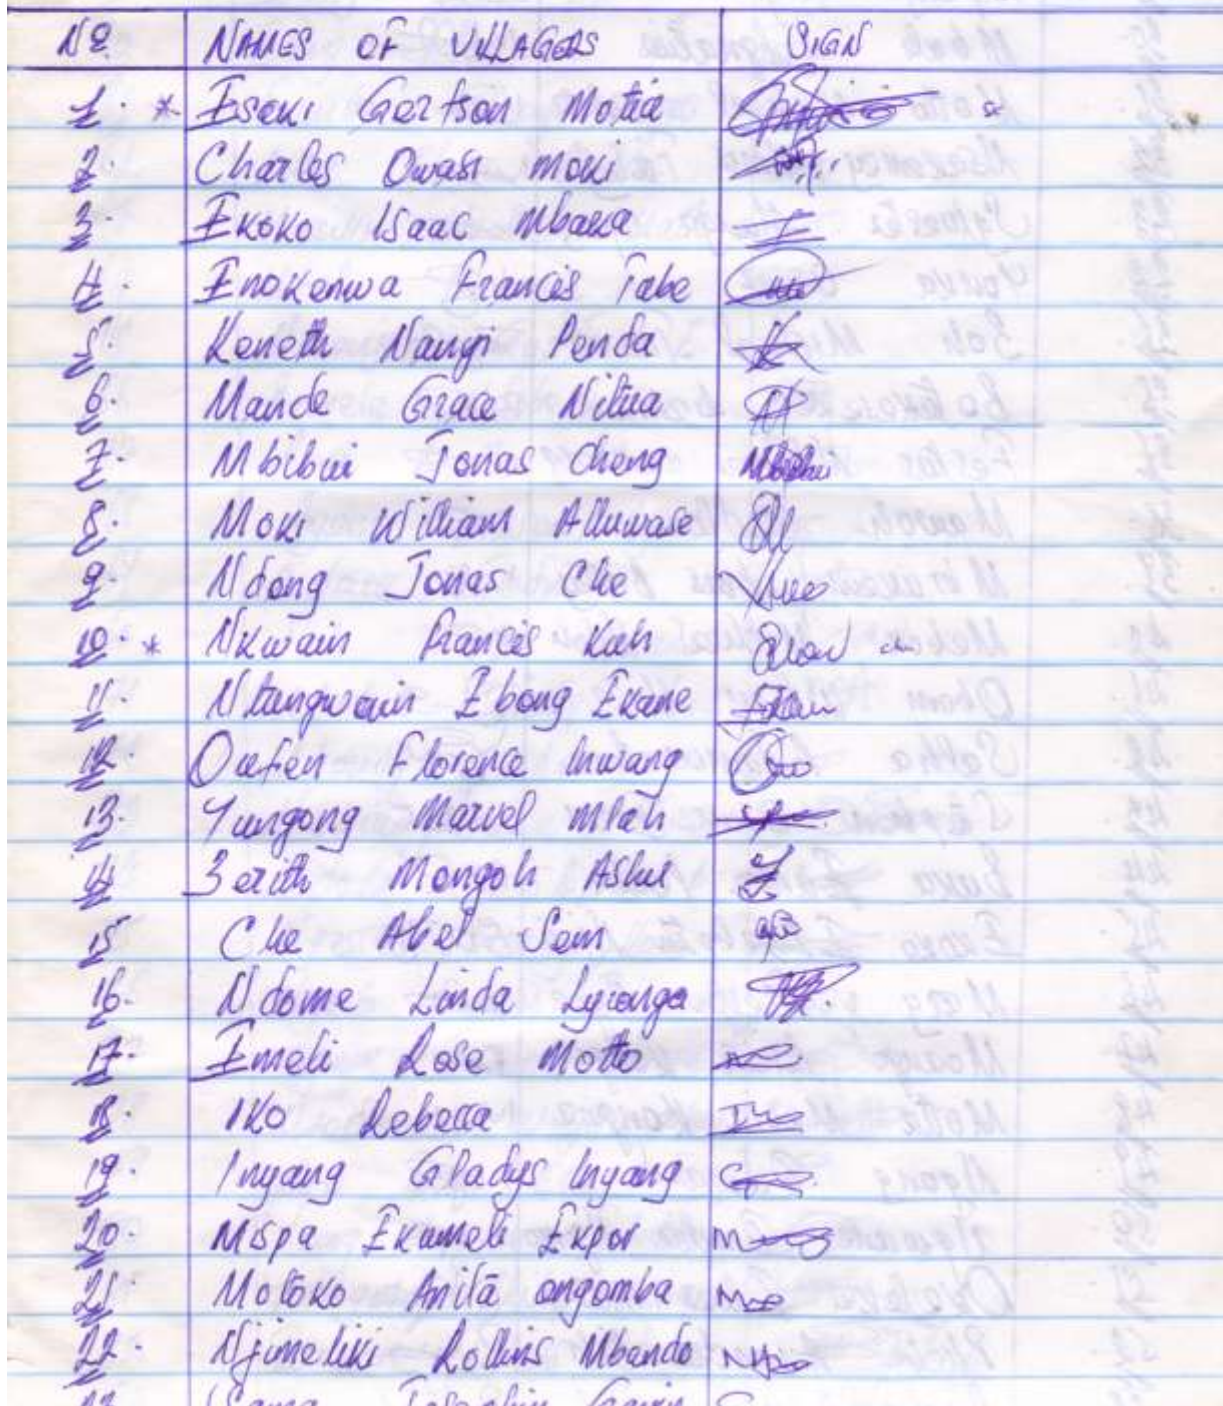 No NAMES OF VILLAGERS SIGN
1. * Esoki Gerfson Motia
2. Charles Owasi Moki
3. Ekoko Isaac Mbaka
4. Enokenwa Francis Tabe
5. Keneth Nangi Penda
6. Mande Grace
7. Mbibui Jonas Cheng Mbibui
8. Moki William Alluwase
9. Ndong Jonas Che
10. * Nkwain Francis Kah
11. Ntangwain Ebong Ekane
12. Florence Inwang
13. Yungong Marvel Mlah
14. Mongoh
15 Che Abel Sem
16. Ndome Linda Lyronga
17. Emeli Rose Motto
18. IKO Rebecca
19. Inyang Gladys Inyang
20. Mispa Ekumeli Ekpor
21. Motoko Anita ongomba
22. Njimeliki Rollins Mbando